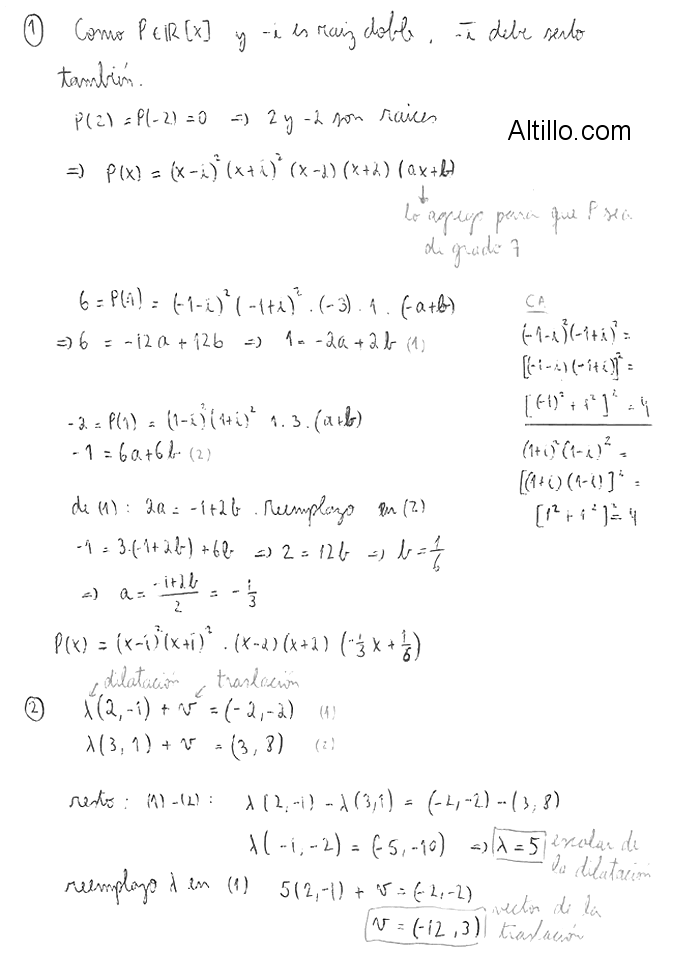 ① Como P∈ℝ[x] y -i es raiz doble, \overline{-i} debe serlo
también.
P(2) = P(-2) = 0 ⇒ 2 y -2 son raices
Altillo.com
⇒ P(x) = (x-i)² (x+i)² (x-2) (x+2) (ax+b)
↓
lo agrego para que P sea
de grado 7
6 = P(-1) = (-1-i)² (-1+i)² . (-3) . 1 . (-a+b)
⇒ 6 = -12a + 12b ⇒ 1 = -2a + 2b (1)
CA
(-1-i)²(-1+i)² =
[(-1-i)(-1+i)]² =
[(-1)² + 1²]² = 4
-2 = P(1) = (1-i)²(1+i)² 1 . 3 . (a+b)
-1 = 6a+6b (2)
(1+i)²(1-i)² =
[(1+i)(1-i)]² =
[1² + 1²]² = 4
de (1): 2a = -1+2b . Reemplazo en (2)
-1 = 3.(-1+2b) + 6b ⇒ 2 = 12b ⇒ b = 1/6
⇒ a = (-1+2b)/2 = -1/3
P(x) = (x-i)²(x+i)² . (x-2)(x+2) (-1/3 x + 1/6)
dilatación traslación
② λ(2,-1) + v = (-2,-2) (1)
λ(3,1) + v = (3,8) (2)
resto: (1)-(2): λ(2,-1) - λ(3,1) = (-2,-2) - (3,8)
λ(-1,-2) = (-5,-10) ⇒ λ=5 escalar de
la dilatación
reemplazo λ en (1) 5(2,-1) + v = (-2,-2)
v = (-12,3) vector de la
traslación